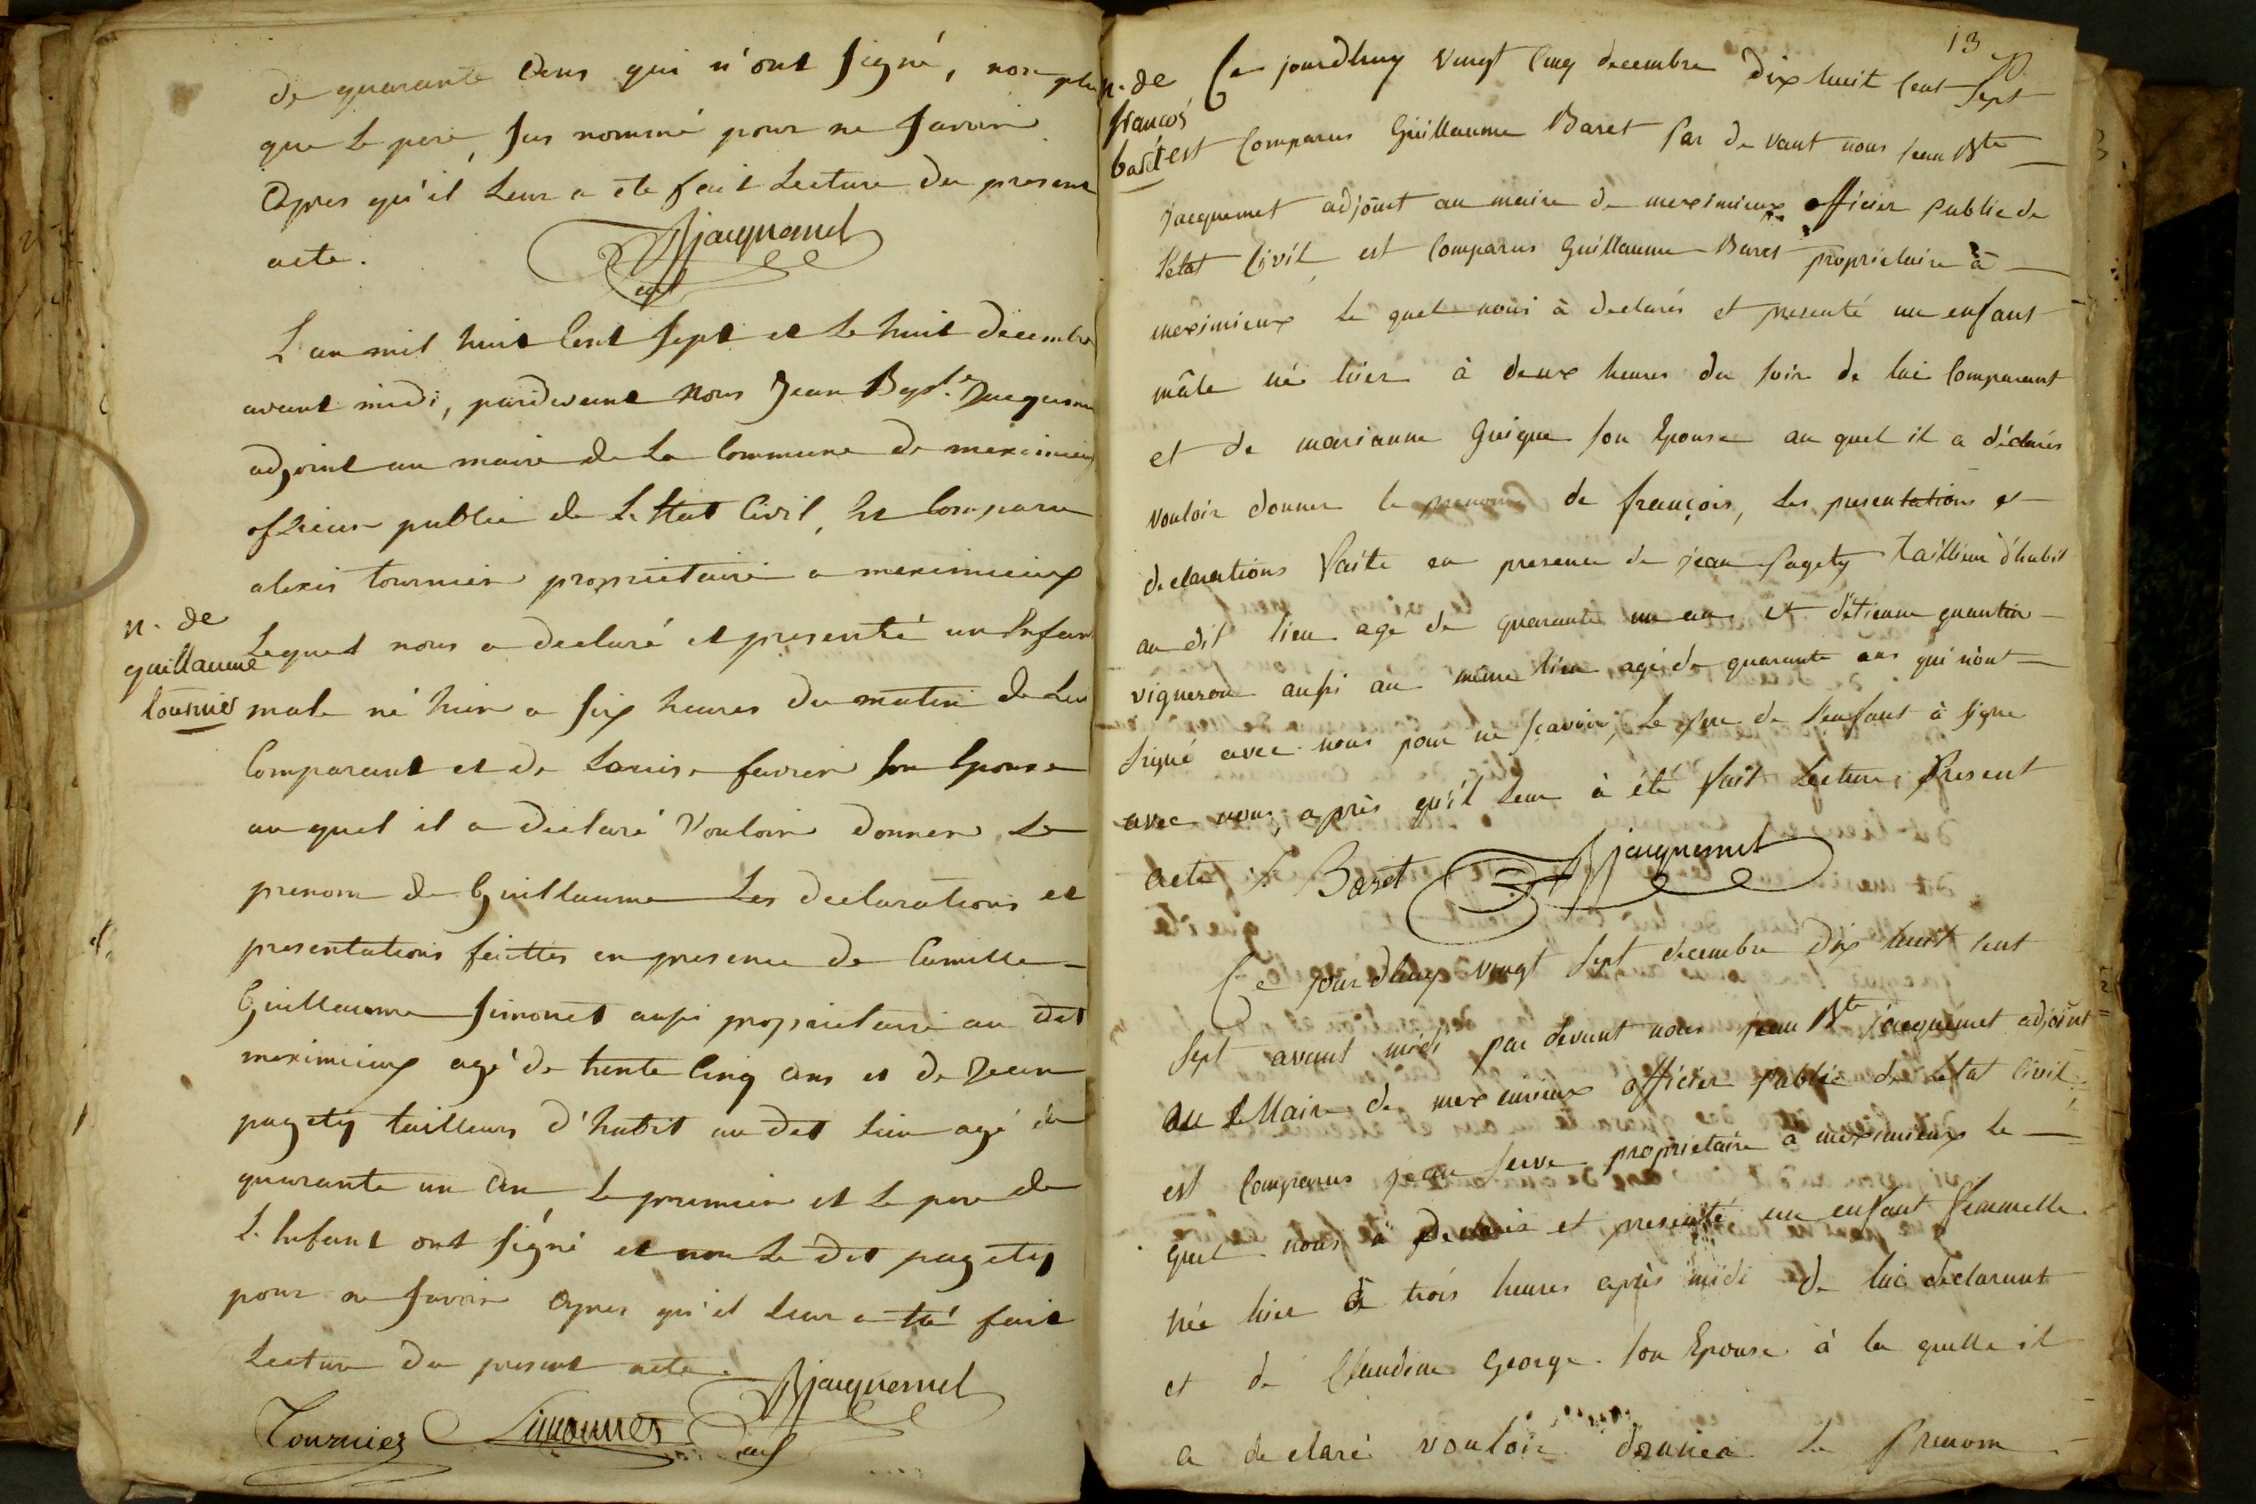 de quarante deux qui n'ont signé, non plus
que le pere sus nommé pour ne savoir
apres qu'il leur a été fait lecture du present
acte.
Jacquemet
adjt
L'an mil huit cent sept et le huit decembre
avant midi, pardevant nous Jean Bapte Jacquemet
adjoint au maire de la commune de meximieux
officier public de l'Etat civil, est comparu
alexis tournier proprietaire a meximieux
n. de
guillaume
tournier
Lequel nous a declaré et presenté un enfant
male né hier a six heures du matin de lui
Comparant et de Louise favrin son Epouse
au quel il a declaré vouloir donner le
prenom de Guillaume Les declarations et
presentations faittes en presence de Camille
Guillaume Simonet aussi proprietaire au dit
meximieux agé de trente cinq ans et de Jean
pagety tailleurs d'habit au dit lieu agé de
quarante un an, le premier et le pere de
l'enfant ont signé et non le dit pagety
pour ne savoir apres qu'il leur a été fait
lecture du present acte.
Jacquemet
Tournier Simonnet adjt
13
n. de
françois
baret
Ce jourdhuy vingt cinq decembre dix huit cent sept
est comparus Guillaume Baret par devant nous jean Bte
jacquemet adjoint au maire de meximieux officier public de
l'etat civil est comparus Guillaume Baret proprietaire à
meximieux le quel nous à declarés et presenté un enfant
mâle né hier à deux heures du soir de lui comparant
et de marianne Guigue son Epouse au quel il a déclarés
vouloir donner le prenom de françois, les presentations et
declarations faite en presence de jean Pagety tailleur d'habit
au dit lieu agé de quarante un an et d'étienne quantin
vigneron aussi au même lieu agé de quarante ans qui n'ont
signé avec nous pour ne sçavoir, le pere de l'enfant à signe
avec nous, après qu'il leur à été fait lecture, present
acte /. Baret Jacquemet
Ce jourdhuy vingt sept decembre dix huit cent
sept avant midi par devant nous jean Bte jacquemet adjoint
au Maire de meximieux officier public de l'etat civil,
est comparus jean serve proprietaire à meximieux le
quel nous à declaré et presenté un enfant femmelle
née hier à trois heures après midi de lui declarant
et de Claudine George son Epouse à la quelle il
a declaré vouloir donner le Prenom